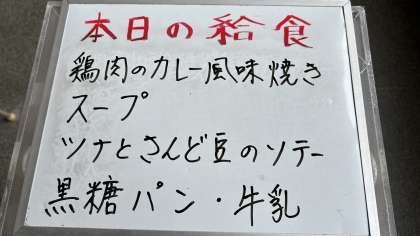 本日の給食
鶏肉のカレー風味焼き
スープ
ツナとさんど豆のソテー
黒糖パン・牛乳